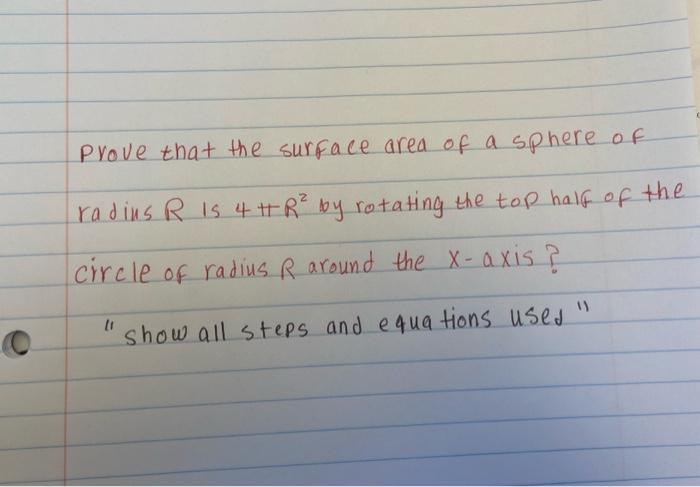 Prove that the surface area of a sphere of
radius R is 4πR² by rotating the top half of the
circle of radius R around the x-axis?
"show all steps and equations used"